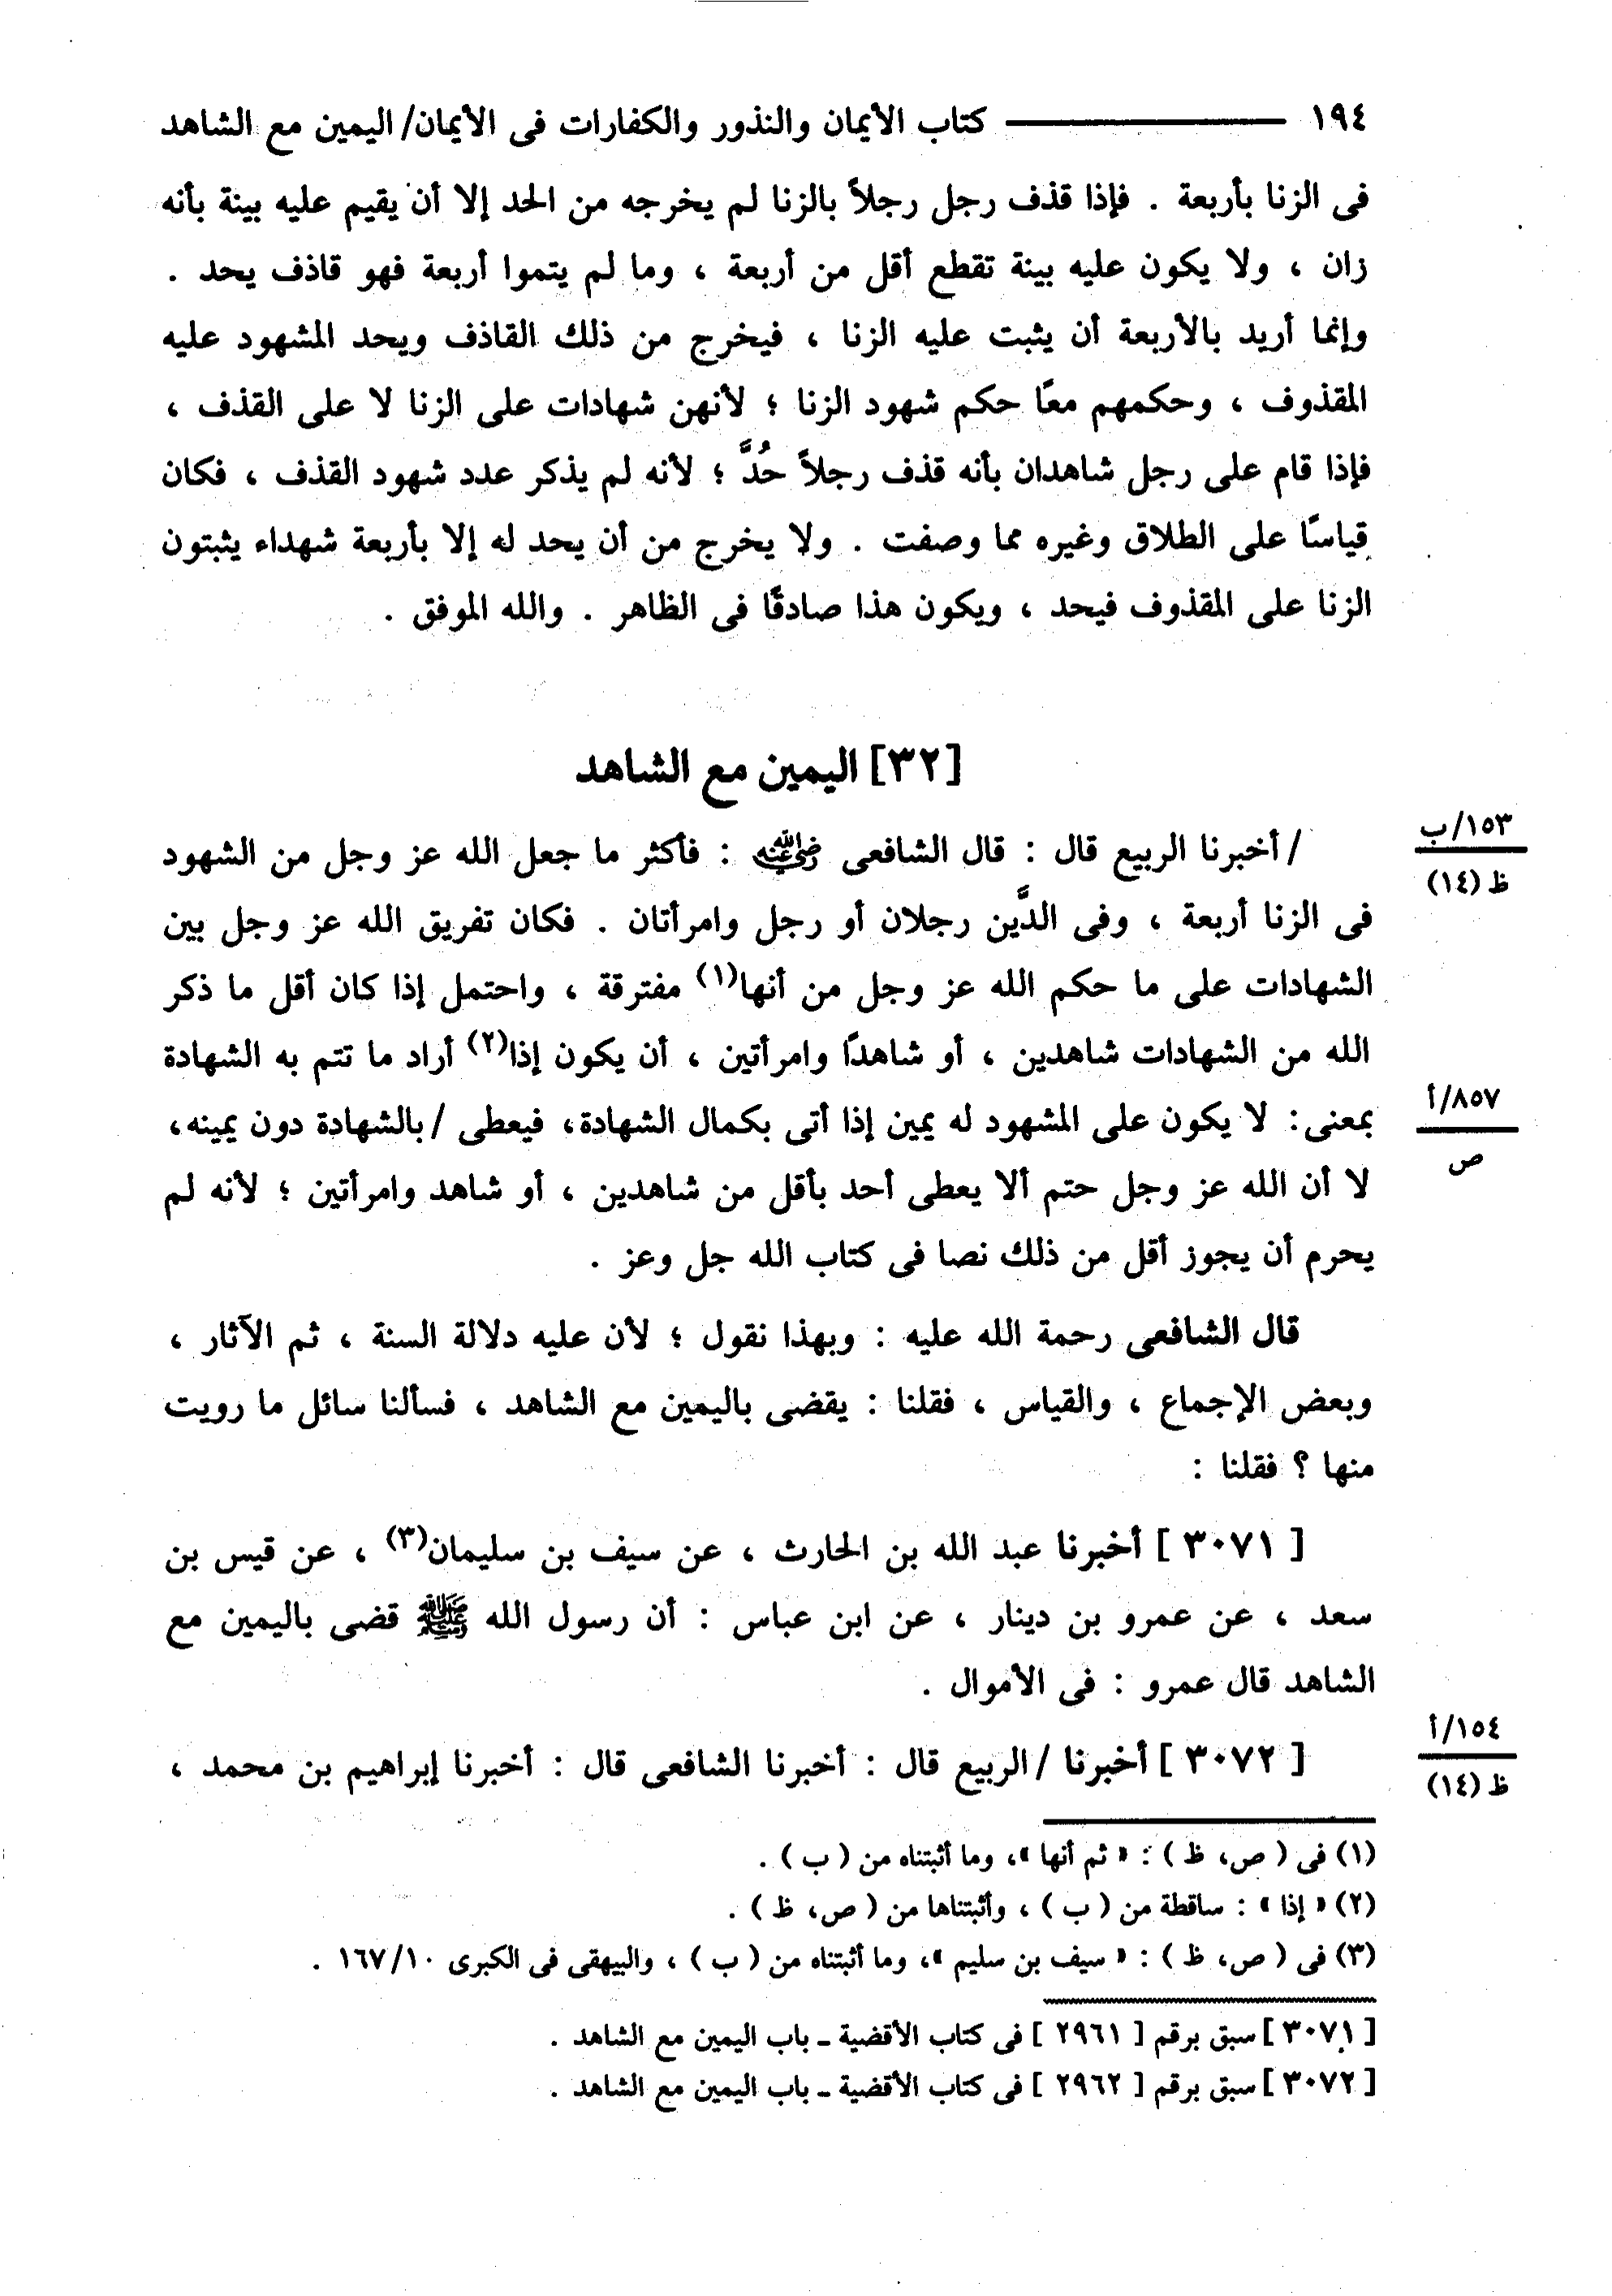 ١٩٤ ـــــــــ كتاب الأيمان والنذور والكفارات فى الأيمان/ اليمين مع الشاهد
فى الزنا بأربعة . فإذا قذف رجل رجلاً بالزنا لم يخرجه من الحد إلا أن يقيم عليه بينة بأنه
زان ، ولا يكون عليه بينة تقطع أقل من أربعة ، وما لم يتموا أربعة فهو قاذف يحد .
وإنما أريد بالأربعة أن يثبت عليه الزنا ، فيخرج من ذلك القاذف ويحد المشهود عليه
المقذوف ، وحكمهم معًا حكم شهود الزنا ؛ لأنهن شهادات على الزنا لا على القذف ،
فإذا قام على رجل شاهدان بأنه قذف رجلاً حُدَّ ؛ لأنه لم يذكر عدد شهود القذف ، فكان
قياسًا على الطلاق وغيره مما وصفت . ولا يخرج من أن يحد له إلا بأربعة شهداء يثبتون
الزنا على المقذوف فيحد ، ويكون هذا صادقًا فى الظاهر . والله الموفق .
[٣٢] اليمين مع الشاهد
١٥٣/ب
ظ (١٤)
/ أخبرنا الربيع قال : قال الشافعى رضي الله عنه : فأكثر ما جعل الله عز وجل من الشهود
فى الزنا أربعة ، وفى الدَّين رجلان أو رجل وامرأتان . فكان تفريق الله عز وجل بين
الشهادات على ما حكم الله عز وجل من أنها(١) مفترقة ، واحتمل إذا كان أقل ما ذكر
الله من الشهادات شاهدين ، أو شاهدًا وامرأتين ، أن يكون إذا(٢) أراد ما تتم به الشهادة
٨٥٧/أ
ص
بمعنى: لا يكون على المشهود له يمين إذا أتى بكمال الشهادة، فيعطى /بالشهادة دون يمينه،
لا أن الله عز وجل حتم ألا يعطى أحد بأقل من شاهدين ، أو شاهد وامرأتين ؛ لأنه لم
يحرم أن يجوز أقل من ذلك نصا فى كتاب الله جل وعز .
قال الشافعى رحمة الله عليه : وبهذا نقول ؛ لأن عليه دلالة السنة ، ثم الآثار ،
وبعض الإجماع ، والقياس ، فقلنا : يقضى باليمين مع الشاهد ، فسألنا سائل ما رويت
منها ؟ فقلنا :
[ ٣٠٧١ ] أخبرنا عبد الله بن الحارث ، عن سيف بن سليمان(٣) ، عن قيس بن
سعد ، عن عمرو بن دينار ، عن ابن عباس : أن رسول الله ﷺ قضى باليمين مع
الشاهد قال عمرو : فى الأموال .
١٥٤/أ
ظ (١٤)
[ ٣٠٧٢ ] أخبرنا /الربيع قال : أخبرنا الشافعى قال : أخبرنا إبراهيم بن محمد ،
(١) فى ( ص، ظ ) : « ثم أنها »، وما أثبتناه من ( ب ) .
(٢) « إذا » : ساقطة من ( ب ) ، وأثبتناها من ( ص، ظ ) .
(٣) فى ( ص، ظ ) : « سيف بن سليم »، وما أثبتناه من ( ب ) ، والبيهقى فى الكبرى ١٠/ ١٦٧ .
[ ٣٠٧١ ] سبق برقم [ ٢٩٦١ ] فى كتاب الأقضية ـ باب اليمين مع الشاهد .
[ ٣٠٧٢ ] سبق برقم [ ٢٩٦٢ ] فى كتاب الأقضية ـ باب اليمين مع الشاهد .